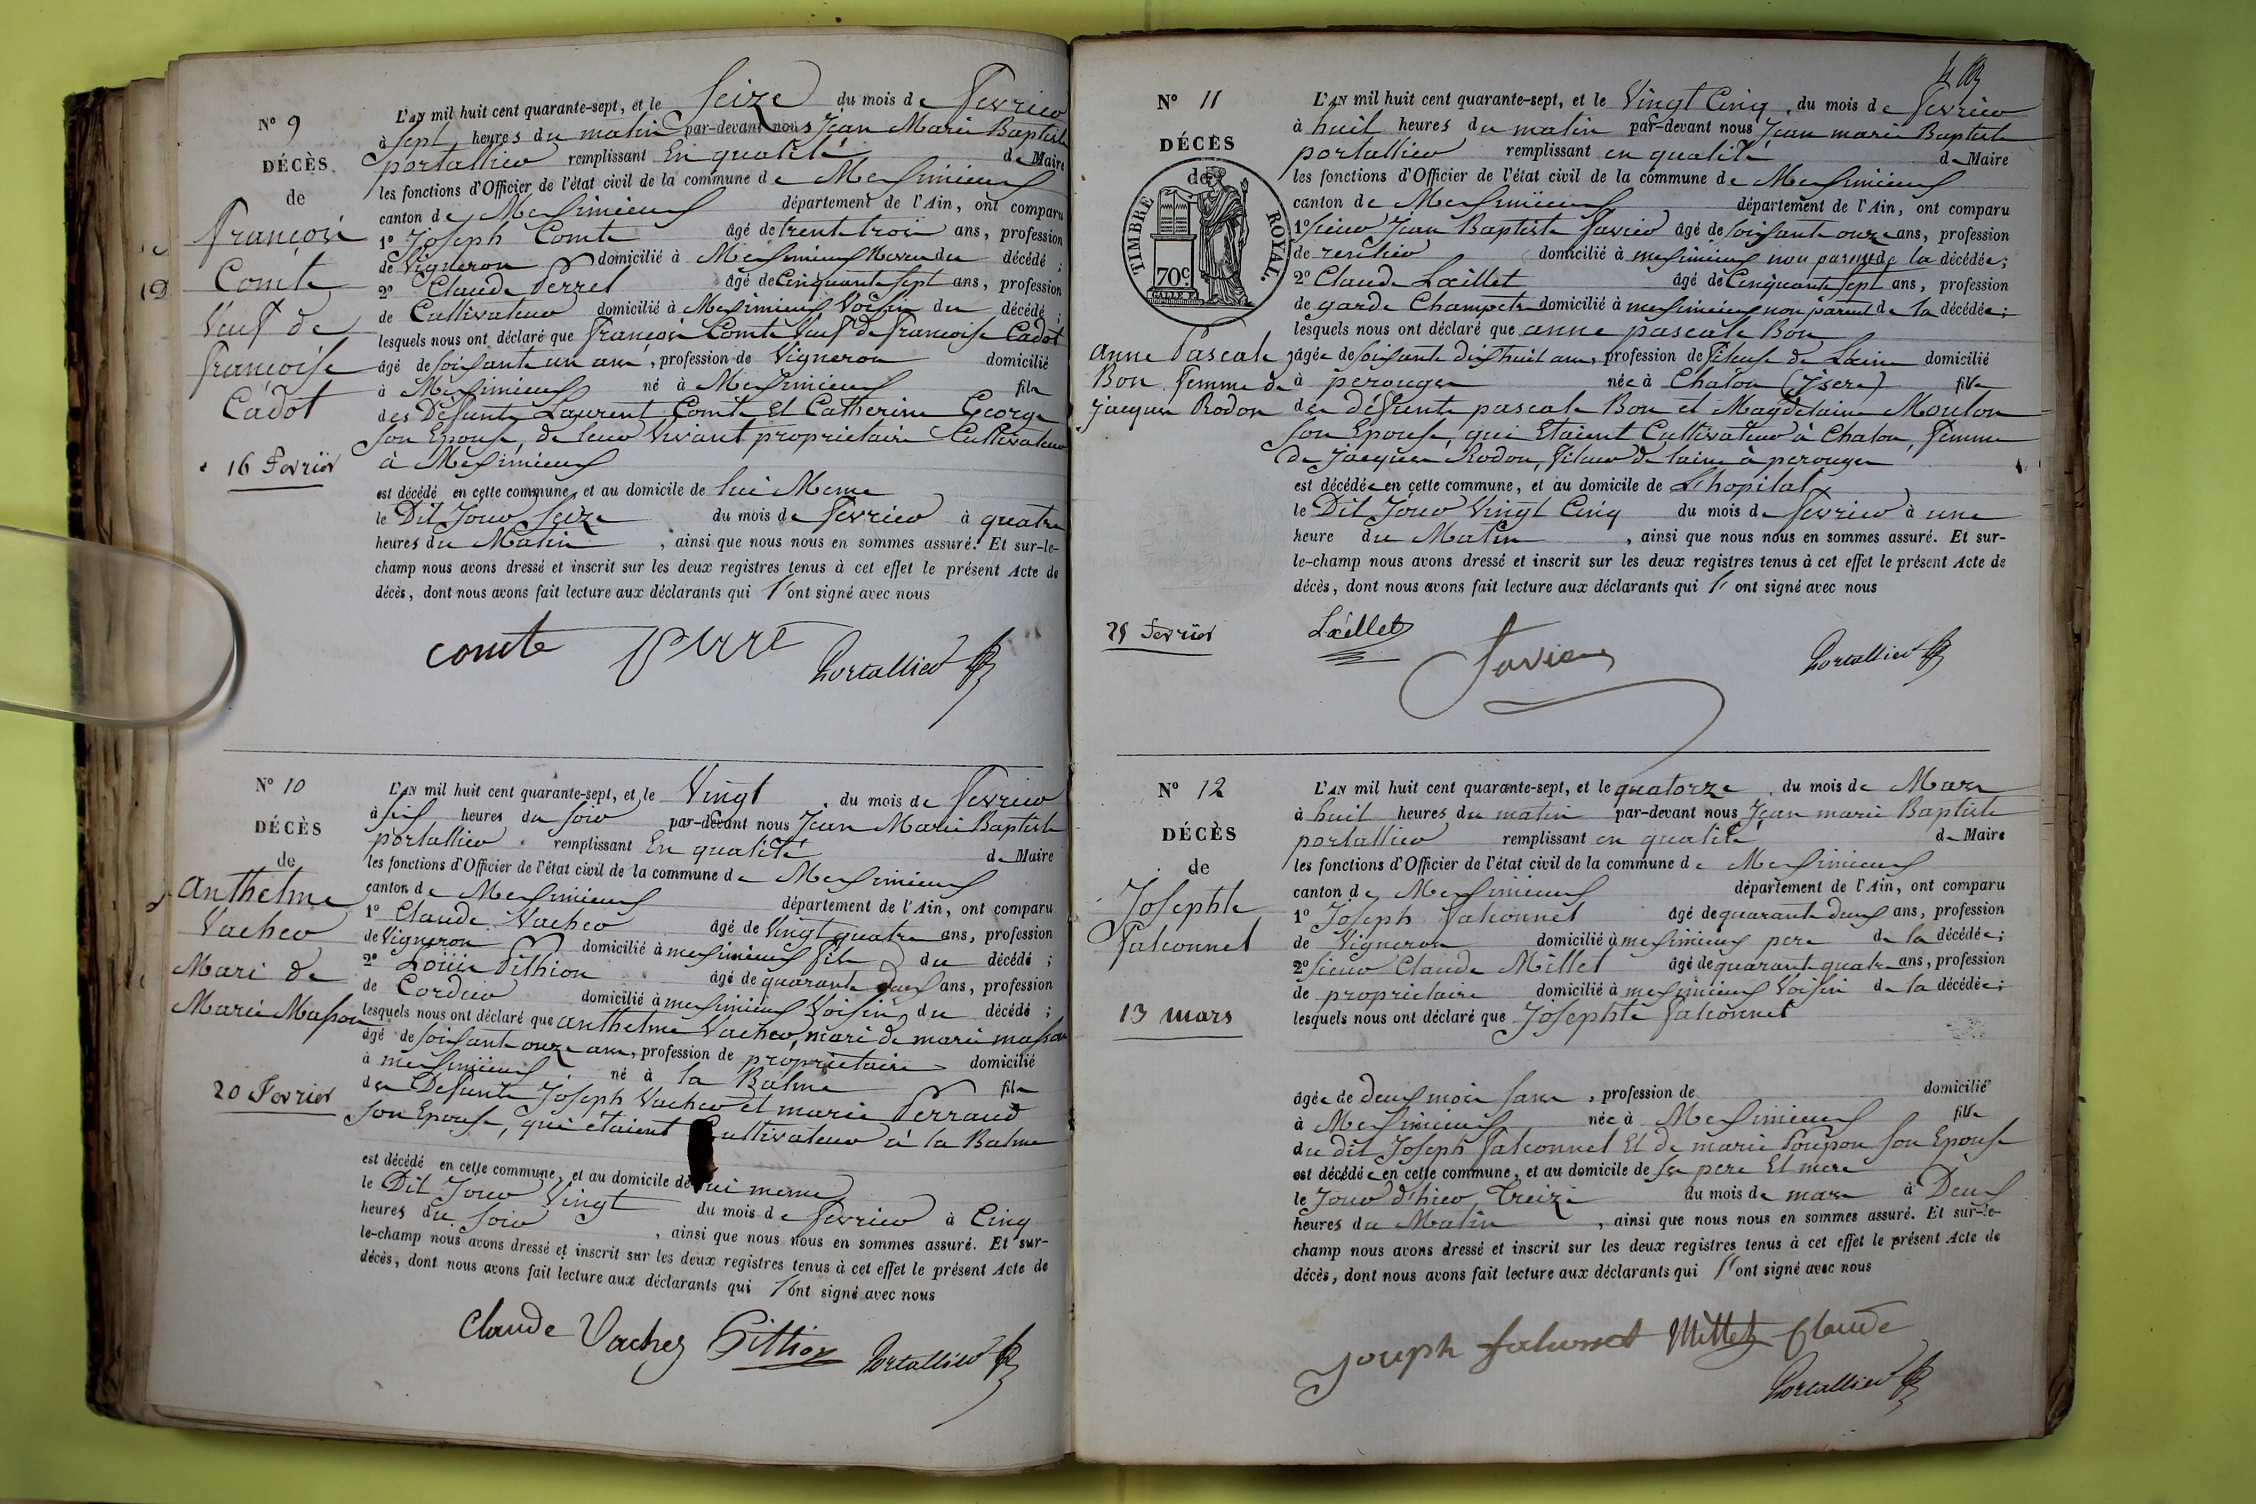 N° 9
DÉCÈS
de
François
Comte
Veuf de
Françoise
Cadot
16 Fevrier
L'AN mil huit cent quarante-sept, et le Seize du mois de Fevrier
à sept heures du matin par-devant nous Jean Marie Baptiste
portallier remplissant En qualité de Maire
les fonctions d'Officier de l'état civil de la commune de Meximieux
canton de Meximieux département de l'Ain, ont comparu
1° Joseph Comte âgé de trente trois ans, profession
de Vigneron domicilié à Meximieux Neveu du décédé ;
2° Claude Perret âgé de Cinquante sept ans, profession
de Cultivateur domicilié à Meximieux Voisin du décédé ;
lesquels nous ont déclaré que françois Comte Veuf de francoise Cadot
âgé de soixante un ans, profession de Vigneron domicilié
à Meximieux né à Meximieux fils
des Defunts Laurent Comte Et Catherine George
son Epouse, de leur Vivant proprietaire Cultivateur
à Meximieux
est décédé en cette commune, et au domicile de lui Meme
le Dit Jour Seize du mois de Fevrier à quatre
heures du Matin, ainsi que nous nous en sommes assuré. Et sur-le-
champ nous avons dressé et inscrit sur les deux registres tenus à cet effet le présent Acte de
décès, dont nous avons fait lecture aux déclarants qui l'ont signé avec nous
comte Perre Portallier
N° 10
DÉCÈS
de
Anthelme
Vacher
Mari de
Marie Masson
20 Fevrier
L'AN mil huit cent quarante-sept, et le Vingt du mois de Fevrier
à six heures du soir par-devant nous Jean Marie Baptiste
portallier remplissant En qualité de Maire
les fonctions d'Officier de l'état civil de la commune de Meximieux
canton de Meximieux département de l'Ain, ont comparu
1° Claude Vacher âgé de Vingt quatre ans, profession
de Vigneron domicilié à meximieux fils du décédé ;
2° Loüis Pithion âgé de quarante deux ans, profession
de Cordier domicilié à meximieux Voisin du décédé ;
lesquels nous ont déclaré que anthelme Vacher, mari de marie masson
âgé de soixante onze ans, profession de proprietaire domicilié
à meximieux né à la Balme fils
des Defunts Joseph Vacher et marie Perraud
son Epouse, qui étaient Cultivateur à la Balme
est décédé en cette commune, et au domicile de lui meme
le Dit Jour Vingt du mois de Fevrier à Cinq
heures du soir, ainsi que nous nous en sommes assuré. Et sur-
le-champ nous avons dressé et inscrit sur les deux registres tenus à cet effet le présent Acte de
décès, dont nous avons fait lecture aux déclarants qui l'ont signé avec nous
Claude Vacher Pithion Portallier
N° 11
DÉCÈS
de
TIMBRE ROYAL.
70c.
Anne Pascale
Bon femme de
jacques Rodon
25 Fevrier
L'AN mil huit cent quarante-sept, et le Vingt Cinq du mois de Fevrier
à huit heures du matin par-devant nous Jean marie Baptiste
portallier remplissant en qualité de Maire
les fonctions d'Officier de l'état civil de la commune de Meximieux
canton de Meximieux département de l'Ain, ont comparu
1° sieur Jean Baptiste Favier âgé de soixante onze ans, profession
de rentier domicilié à meximieux non parent de la décédée ;
2° Claude Lœillet âgé de Cinquante sept ans, profession
de garde Champetre domicilié à meximieux non parent de la décédée ;
lesquels nous ont déclaré que anne pascale Bon
âgée de soixante dix huit ans, profession de fileuse de Laine domicilié
à perouges née à Chalon (Isere) fille
des défunts pascale Bon et Magdelaine Moulon
son Epouse, qui Etaient Cultivateur à Chalon, femme
de jacques Rodon, fileur de laine à perouges
est décédée en cette commune, et au domicile de L'hopital
le Dit Jour Vingt Cinq du mois de Fevrier à une
heure du Matin, ainsi que nous nous en sommes assuré. Et sur-
le-champ nous avons dressé et inscrit sur les deux registres tenus à cet effet le présent Acte de
décès, dont nous avons fait lecture aux déclarants qui l'ont signé avec nous
Lœillet Favier Portallier
N° 12
DÉCÈS
de
Josephte
Falconnet
13 mars
L'AN mil huit cent quarante-sept, et le quatorze du mois de Mars
à huit heures du matin par-devant nous Jean marie Baptiste
portallier remplissant en qualité de Maire
les fonctions d'Officier de l'état civil de la commune de Meximieux
canton de Meximieux département de l'Ain, ont comparu
1° Joseph Falconnet âgé de quarante deux ans, profession
de Vigneron domicilié à meximieux pere de la décédée ;
2° sieur Claude Millet âgé de quarante quatre ans, profession
de proprietaire domicilié à meximieux Voisin de la décédée ;
lesquels nous ont déclaré que Josephte Falconnet
âgée de deux mois, profession de domicilié
à Meximieux née à Meximieux fille
du dit Joseph Falconnet Et de marie Poupon son Epouse
est décédée en cette commune, et au domicile de ses pere Et mere
le Jour d'hier Treize du mois de mars à Deux
heures du Matin, ainsi que nous nous en sommes assuré. Et sur-le-
champ nous avons dressé et inscrit sur les deux registres tenus à cet effet le présent Acte de
décès, dont nous avons fait lecture aux déclarants qui l'ont signé avec nous
Joseph falconet Millet Claude
Portallier